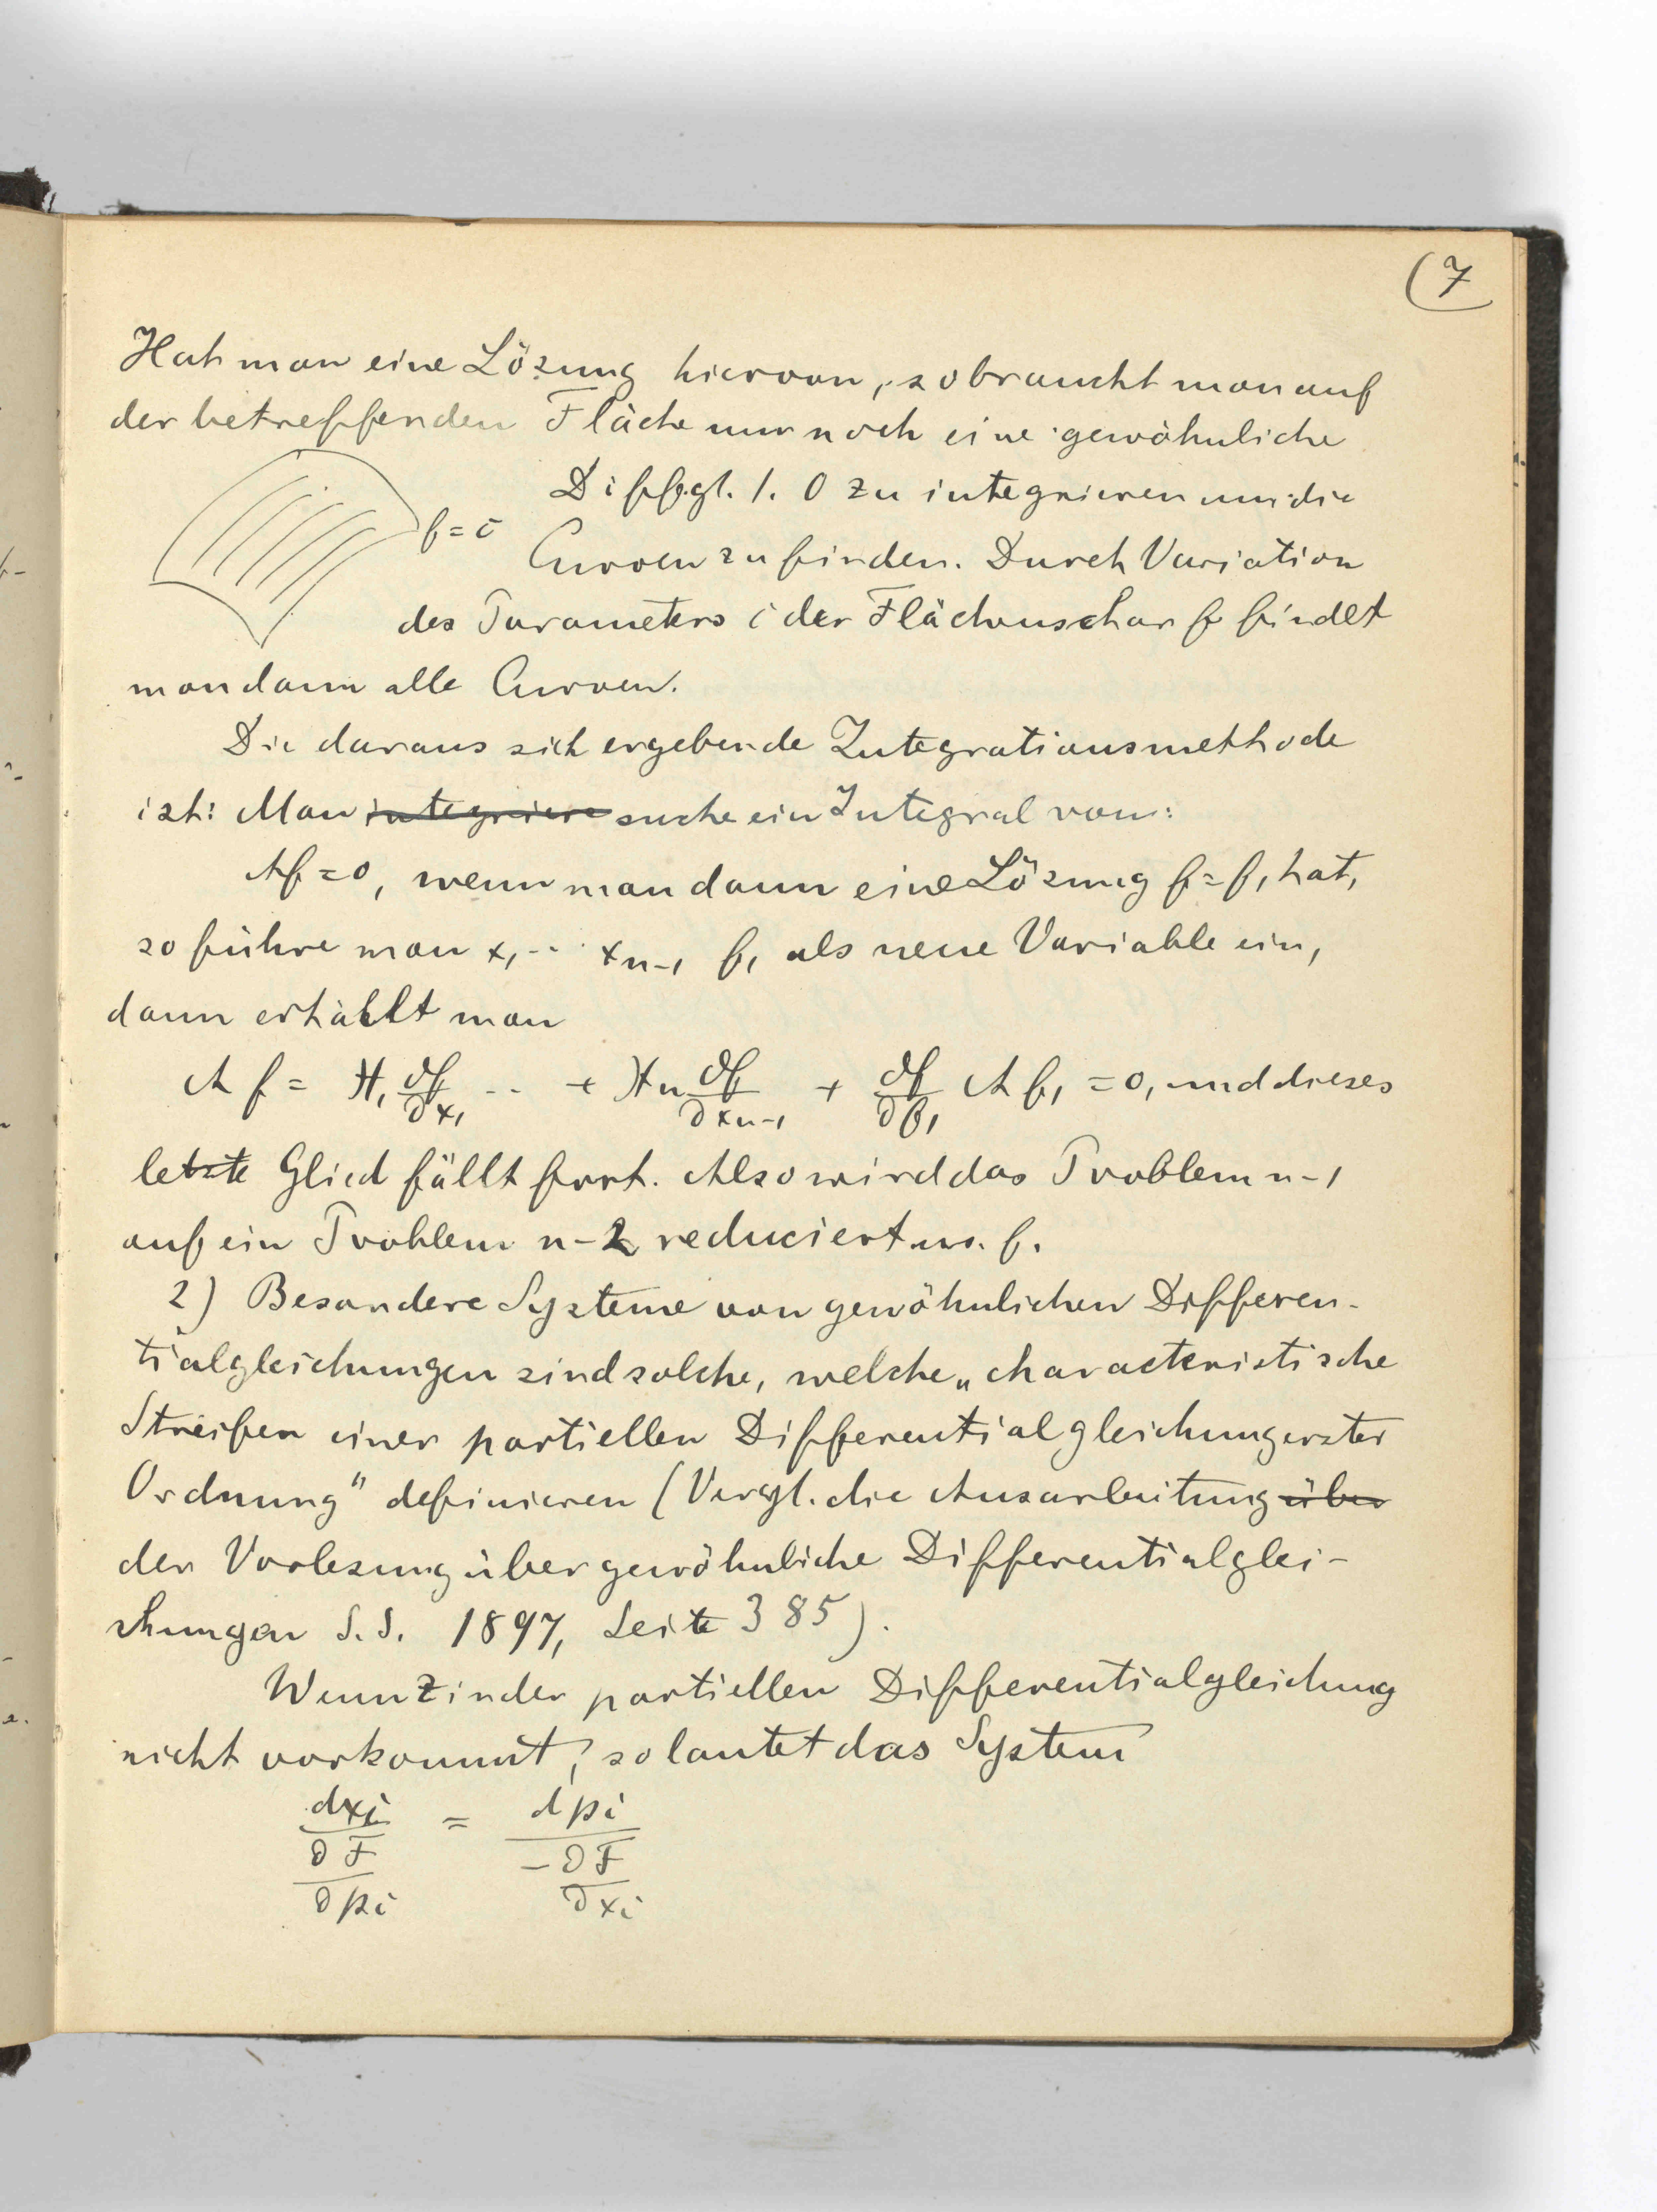 (7
Hat man eine Lösung hiervon, so braucht man auf
der betreffenden Fläche nur noch eine gewöhnliche
Diffgl. 1. O zu integrieren um die
f = c
Curven zu finden. Durch Variation
des Parameters c der Flächenschar f findet
man dann alle Curven.
Die daraus sich ergebende Integrationsmethode
ist: Man integriere suche ein Integral von:
Af = 0, wenn man dann eine Lösung f = f₁ hat,
so führe man x₁ .. xₙ₋₁ f₁ als neue Variable ein,
dann erhällt man
A f = X₁ ∂f/∂x₁ .. + Xₙ ∂f/∂xₙ₋₁ + ∂f/∂f₁ A f₁ = 0, und dieses
letzte Glied fällt fort. Also wird das Problem n-1
auf ein Problem n-2 reduciert u.s.f.
2) Besondere Systeme von gewöhnlichen Differen-
tialgleichungen sind solche, welche „characteristische
Streifen einer partiellen Differentialgleichung erster
Ordnung" definieren (Vergl. die Ausarbeitung über
der Vorlesung über gewöhnliche Differentialglei-
chungen S.S. 1897, Seite 385).
Wenn z in der partiellen Differentialgleichung
nicht vorkommt, so lautet das System
dxᵢ / (∂F/∂pᵢ) = dpᵢ / (-∂F/∂xᵢ)